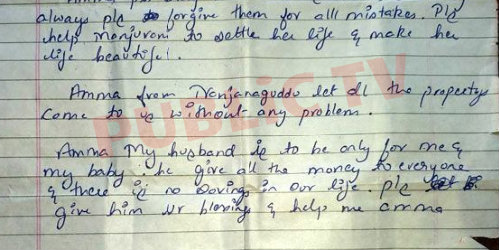 always plc forgive them for alll mistakes. Plc
help Manjurem to settle her life & make her
life beautiful.
Amma from Nanjanaguddu let all the propertys
Come to us without any problem.
Amma My husband is to be only for me &
my baby. he give all the money to everyone
& there is no savings in our life. plc
give him ur blessing & help me amma
PUBLIC TV